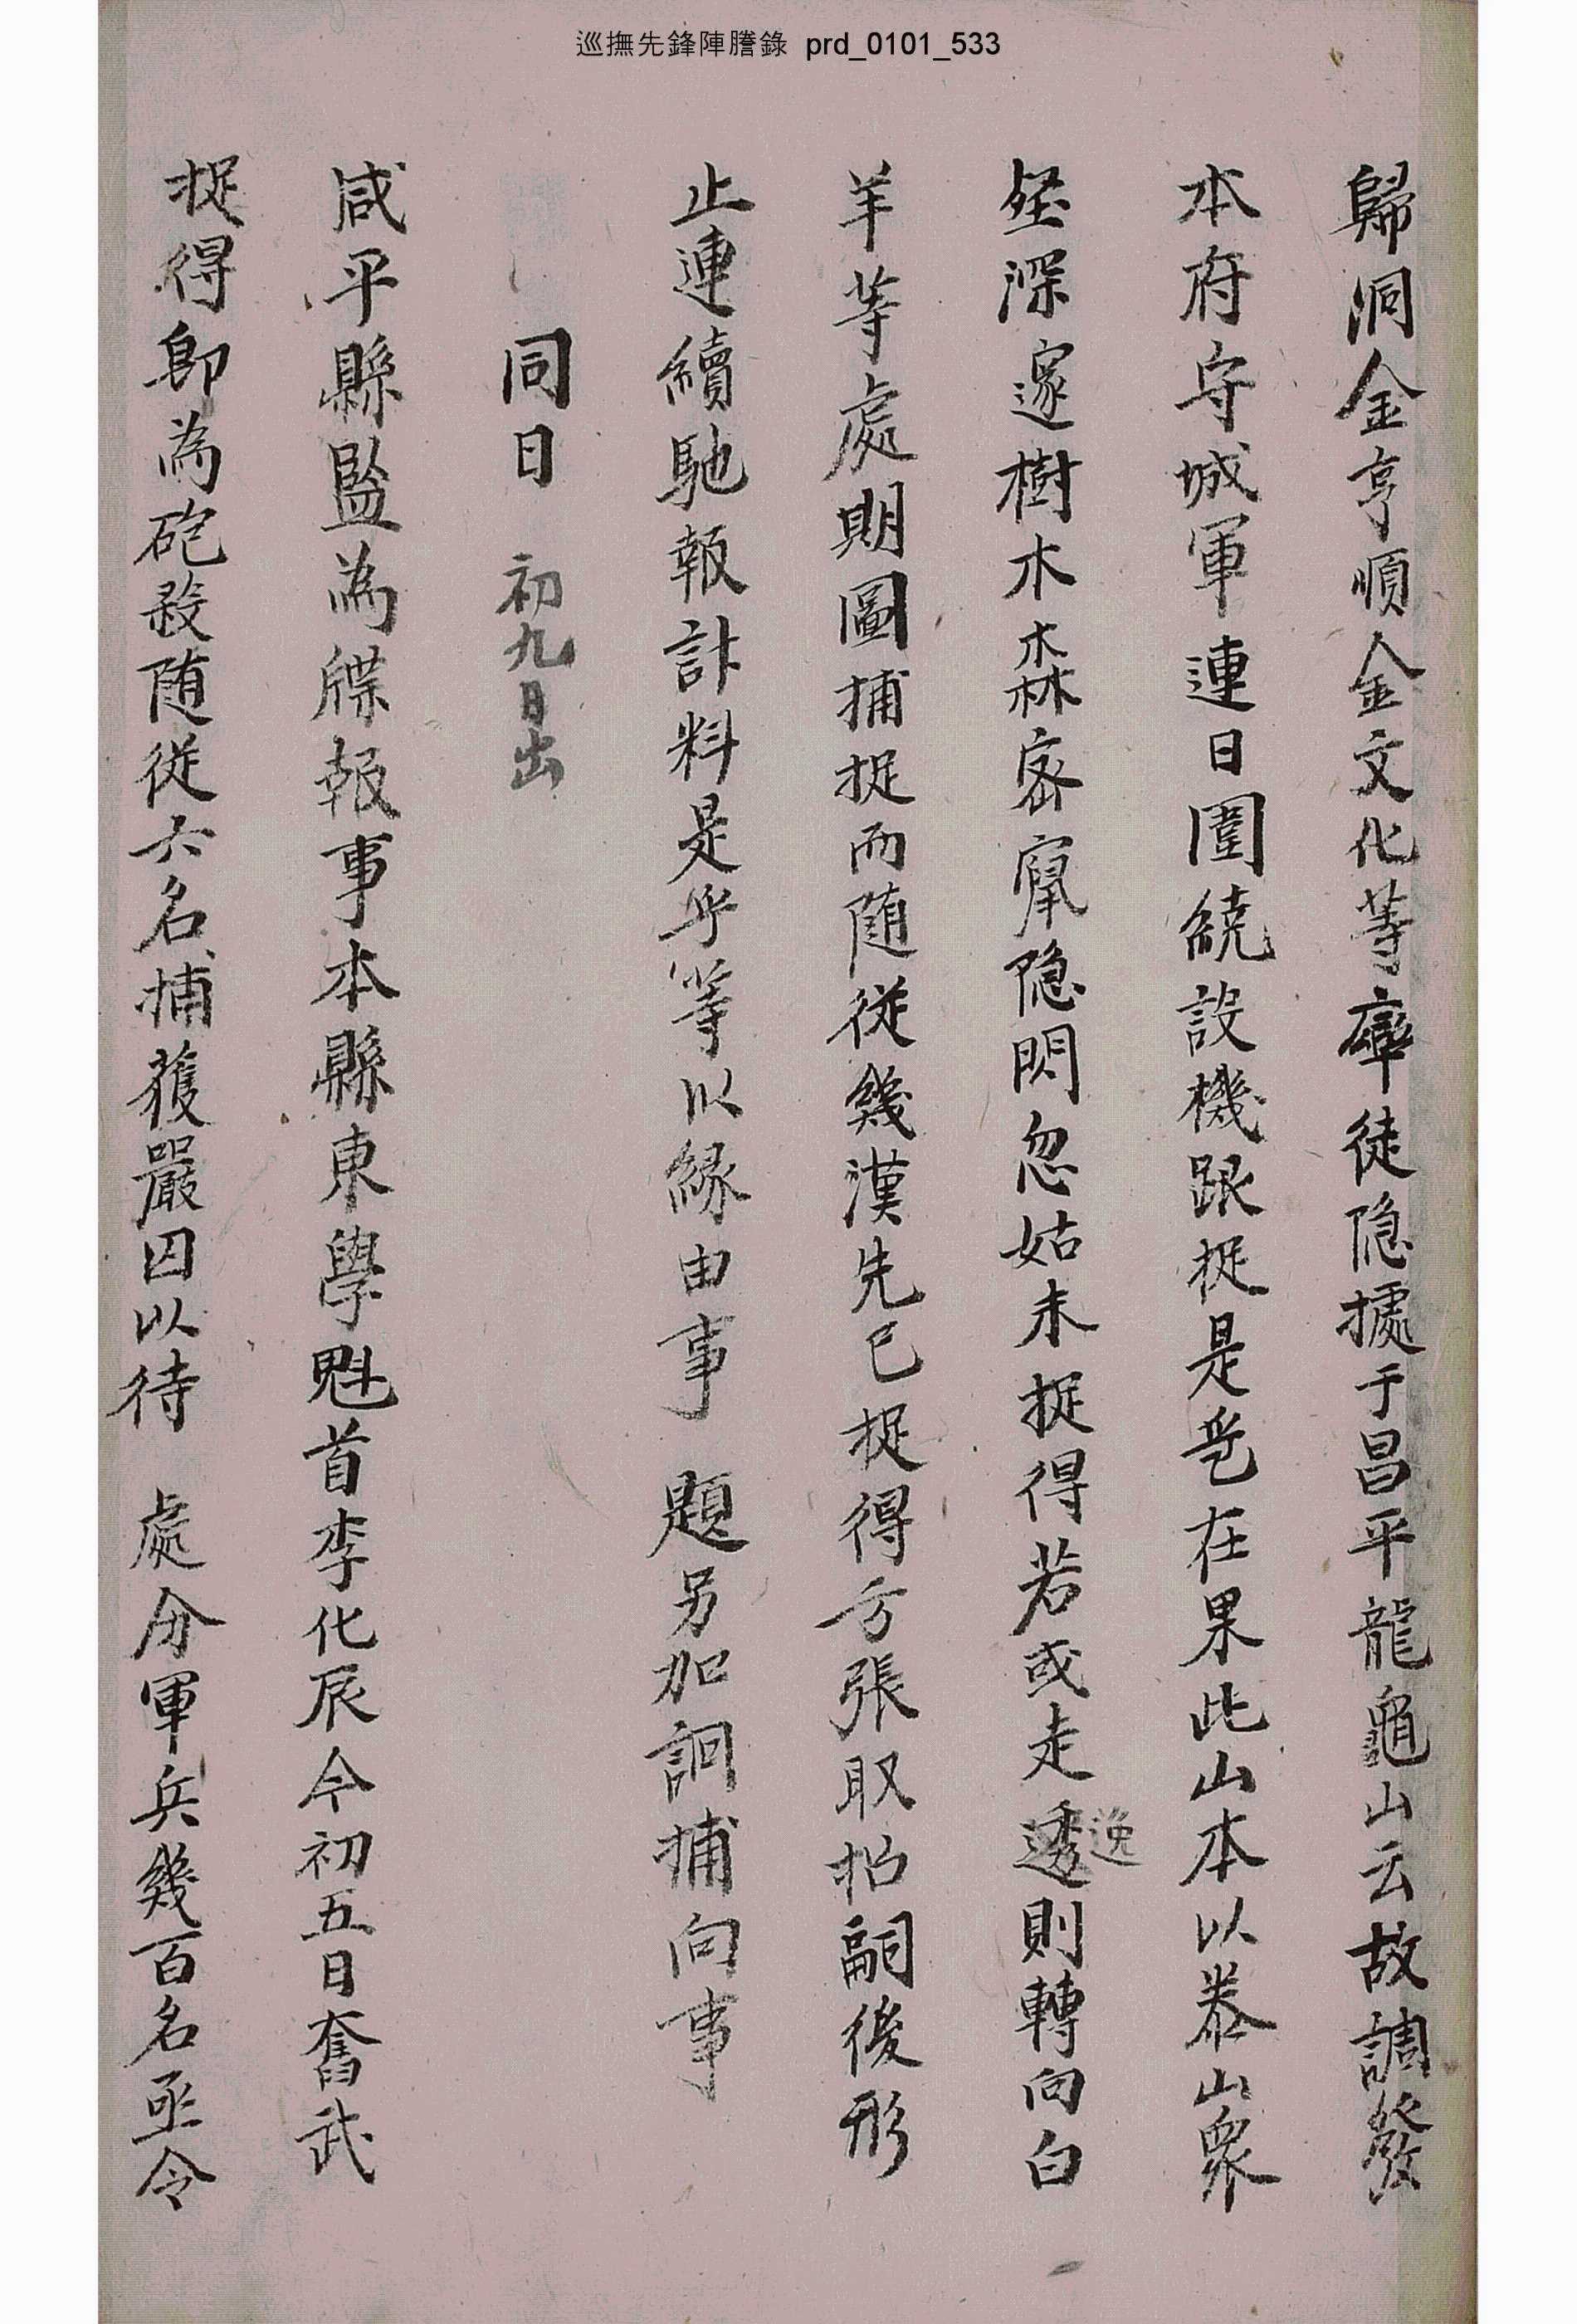 巡撫先鋒陣謄錄 prd_0101_533
歸洞金亨順金文化等率徒隐據于昌平龍龜山云故調發
本府守城軍連日圍繞設機跟捉是乎在果此山本以泰山衆
壑深邃樹木森密竄隐閃忽姑未捉得若或走透則轉向白
逸
羊等處期圖捕捉而随從幾漢先已捉得方張取招嗣後形
止連續馳報計料是乎等以緣由事 題另加詗捕向事
同日 初九日出
咸平縣監為牒報事本縣東學魁首李化辰今初五日奮武
捉得卽為砲殺随從六名捕獲嚴囚以待 處分軍兵幾百名亟令